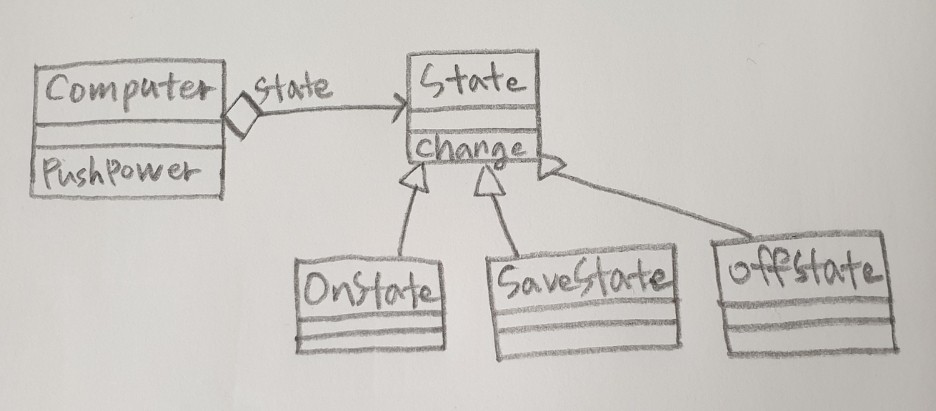 Computer
PushPower
state
State
change
OnState
SaveState
offstate